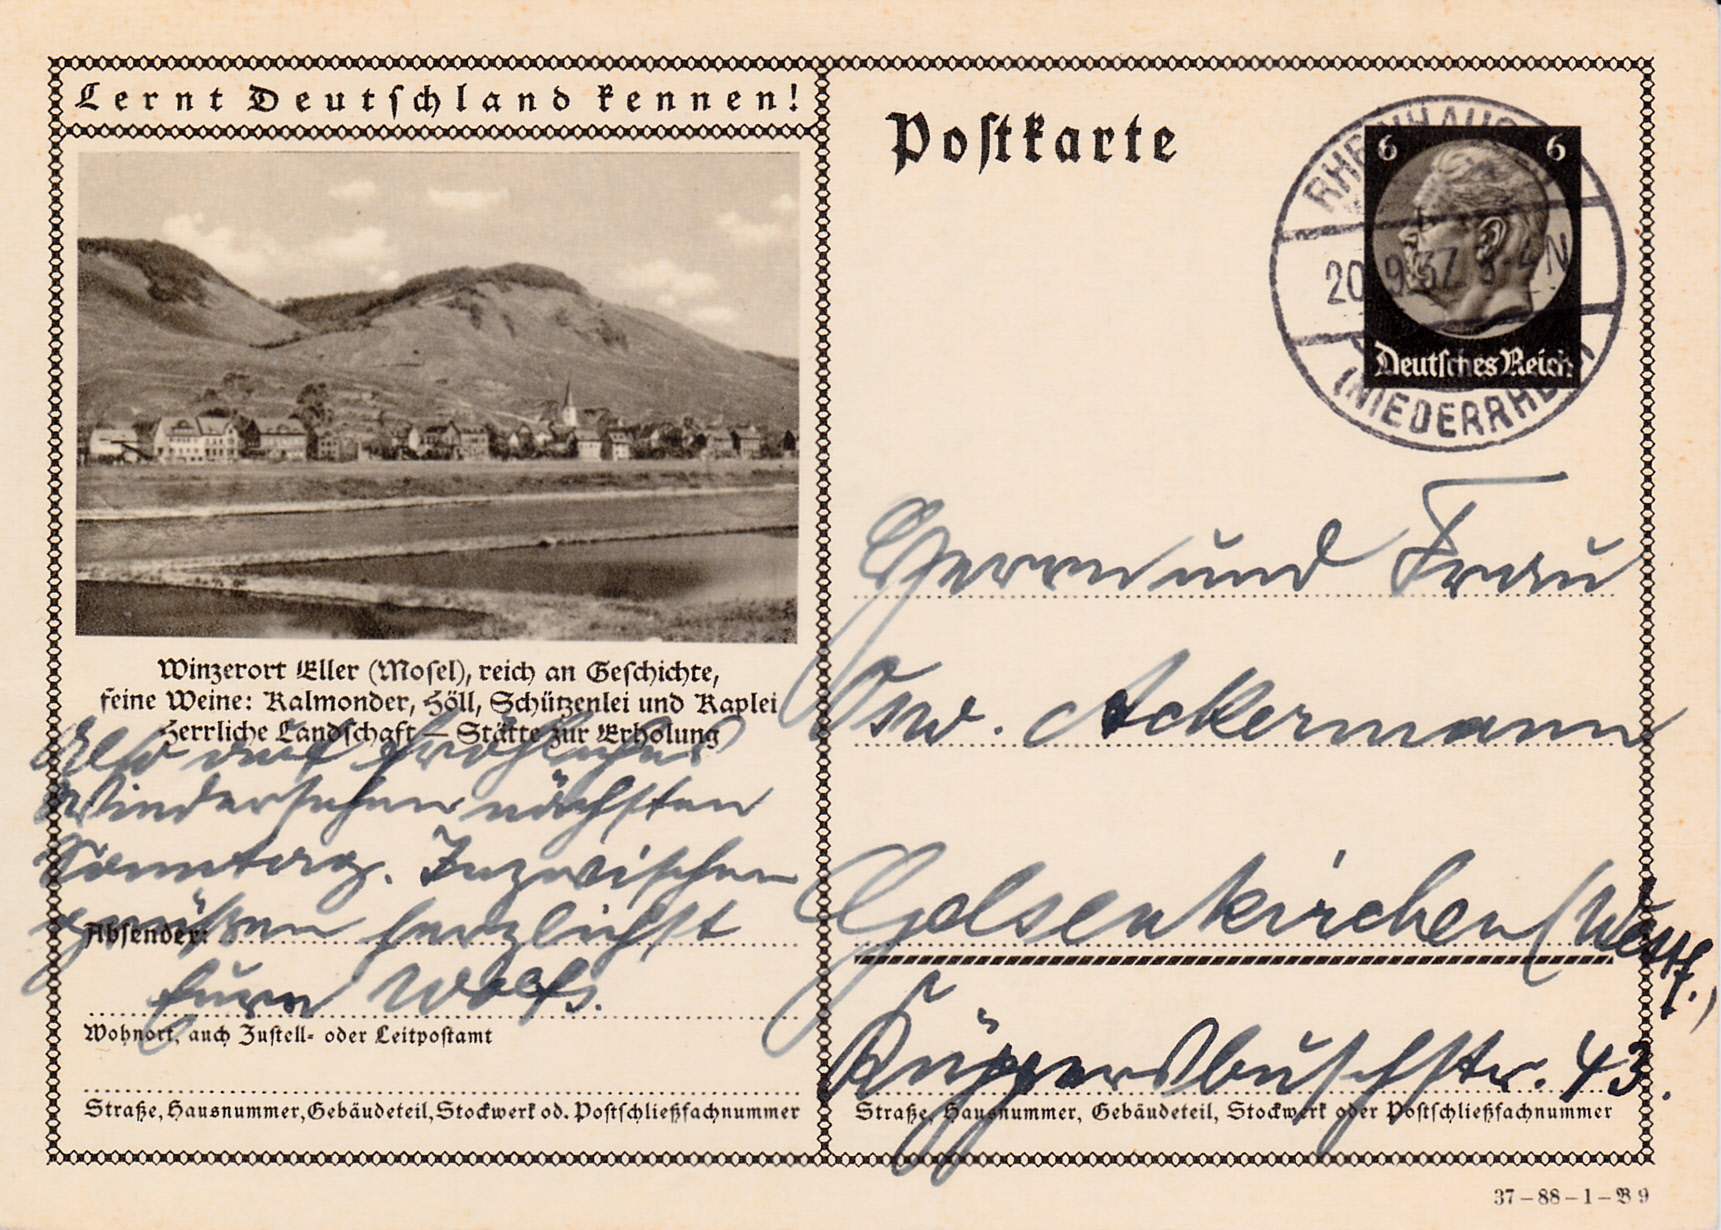 Lernt Deutschland kennen!
Postkarte
6 6
Deutsches Reich
RHEINHAUSEN
20.9.37
(NIEDERRHEIN)
Winzerort Eller (Mosel), reich an Geschichte,
feine Weine: Kalmonder, Höll, Schützenlei und Kaplei
Herrliche Landschaft – Stätte zur Erholung
Also auf fröhliches
Wiedersehen nächsten
Sonntag. Inzwischen
grüßen herzlichst
Eure Wolfs.
Absender:
Wohnort, auch Zustell- oder Leitpostamt
Straße, Hausnummer, Gebäudeteil, Stockwerk od. Postschließfachnummer
Herrn und Frau
Osw. Ackermann
Gelsenkirchen (Westf.)
Küppersbuschstr. 43.
Straße, Hausnummer, Gebäudeteil, Stockwerk oder Postschließfachnummer
37–88–1–B 9